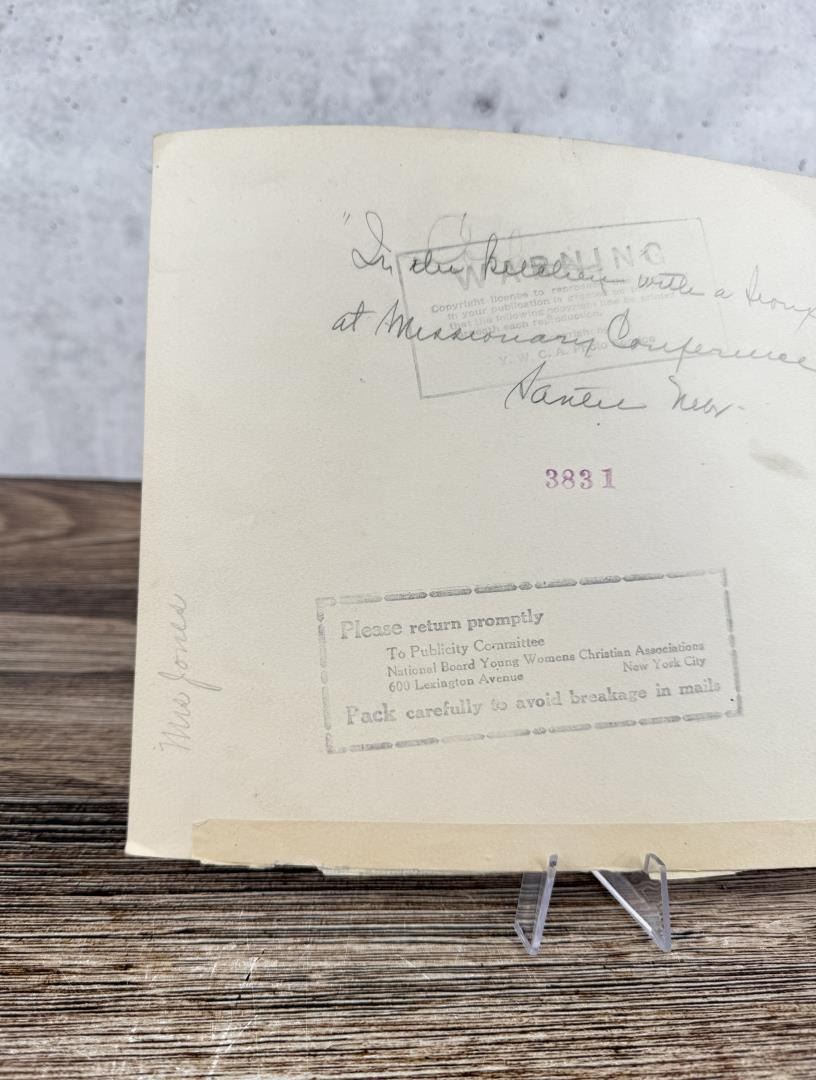 "In the kitchen" with a group
at Missionary Conference
Santee Nebr-
WARNING
Copyright license to
in your publication is
that the following
each reproduction.
Y. W. C. A.
3831
Please return promptly
To Publicity Committee
National Board Young Womens Christian Associations
600 Lexington Avenue New York City
Pack carefully to avoid breakage in mails
Mrs Jones